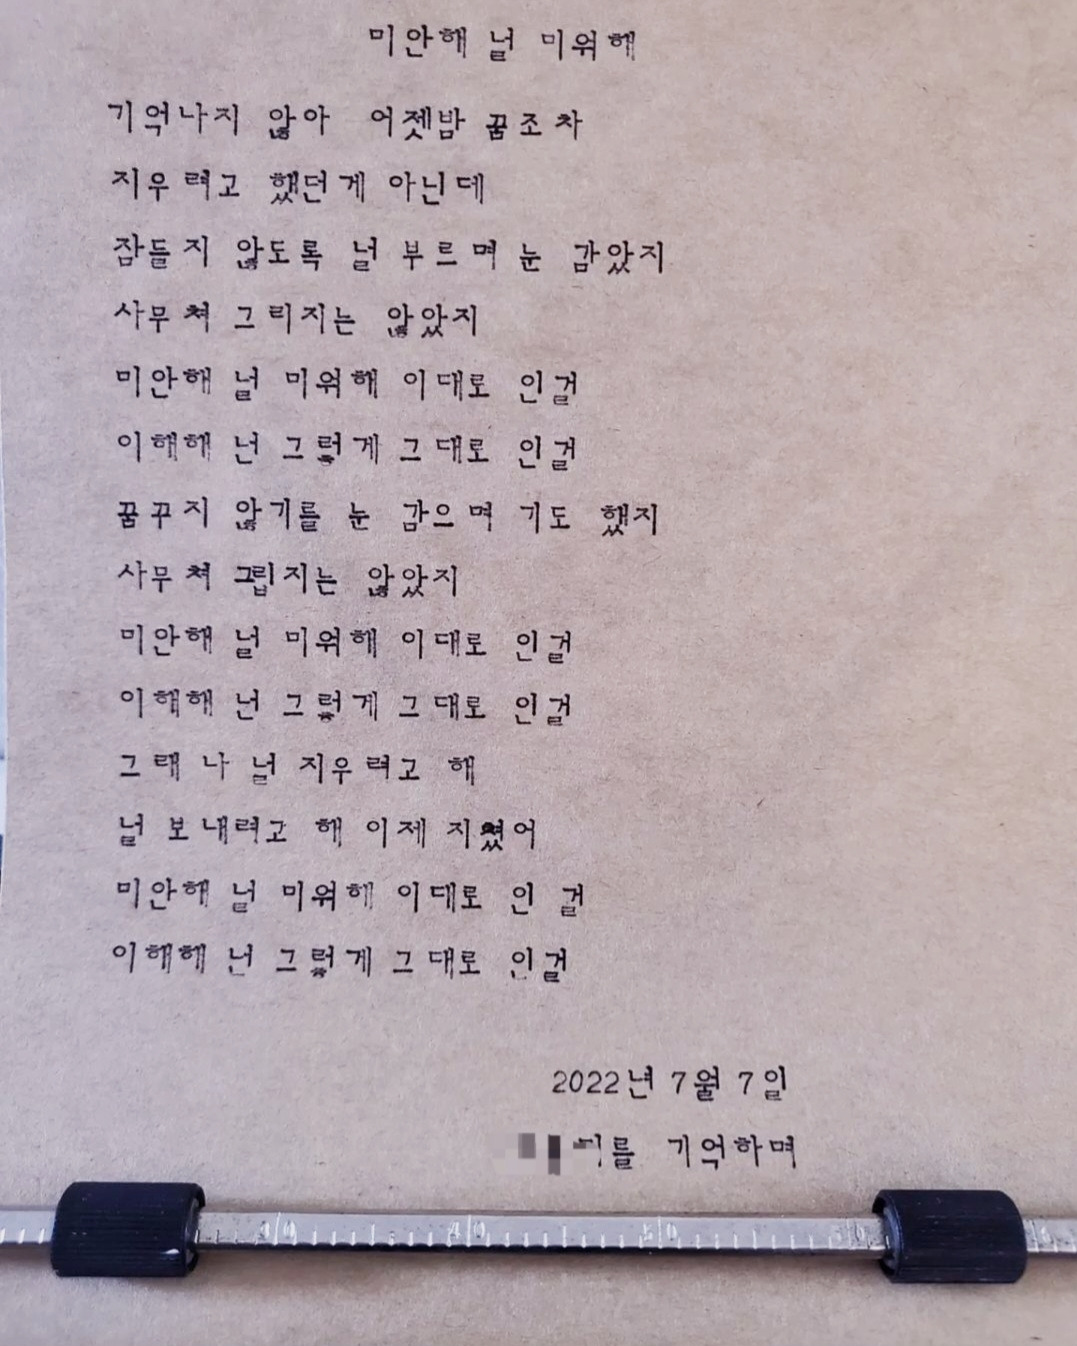 미안해 널 미워해
기억나지 않아 어젯밤 꿈조차
지우려고 했던게 아닌데
잠들지 않도록 널 부르며 눈 감았지
사무쳐 그리지는 않았지
미안해 널 미워해 이대로 인걸
이해해 넌 그렇게 그대로 인걸
꿈꾸지 않기를 눈 감으며 기도 했지
사무쳐 그립지는 않았지
미안해 널 미워해 이대로 인걸
이해해 넌 그렇게 그대로 인걸
그래 나 널 지우려고 해
널 보내려고 해 이제 지쳤어
미안해 널 미워해 이대로 인 걸
이해해 넌 그렇게 그대로 인걸
2022년 7월 7일
기억하며
40 50